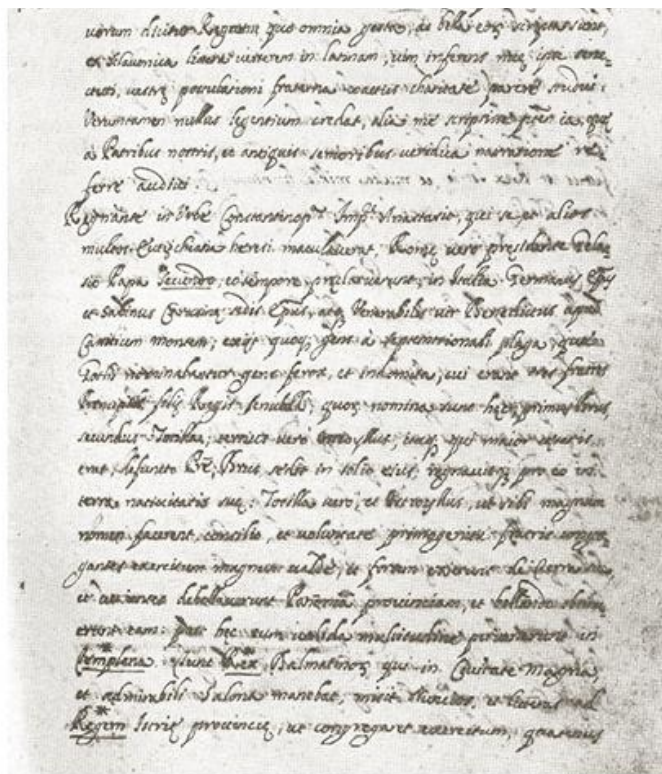 uorum dicitur Regnum quo omnia gesta, ac bella eorũ scripta sunt,
ex Sclauonica littera uerterem in latinam, uim inferens meę ipse senec-
tuti, uestrę postulationi fraterna coactus charitate parere studui.
Veruntamen nullus legentium credat, alia me scripsisse pręter ea, quę
à Patribus nostris, et antiquis senioribus ueridica narratione re-
ferre audiui.
Regnante in Vrbe Constantinop.ª Imp.re Anastasio, qui se et alios
multos Eutychiana heresi maculauerat, Romę uero pręsidente Gela-
sio Papa Secundo, eo tempore pręclaruerunt in Italia Germanus Ep̃us
et Sabinus sedis Ep̃us, atq; Venerabilis uir Benedictus apud
montem; exijt quoq; gens à septentrionali plaga, quę
Gothi nominabantur gens ferox, et indomita, cui erant tres fratres
Principes filij Regis quorũ nomina sunt hęc, primus Brus
secundus Totilla, tertius uero qui maior
erat, defuncto Brus sedit in solio eius, regnauitq; pro eo in
terra natiuitatis suę: Totilla uero, et Ostroyllus, ut sibi magnum
nomen facerent, consilio, et uoluntate primogeniti fratris congre-
gantes exercitum magnum ualde, et fortem exierunt de terra sua,
et uenientes debellauerunt prouinciam, et bellando obtinu-
erunt eam: post hęc cum ualida multitudine in
Templana. Tunc Rex Dalmatinor, qui in Ciuitate magna,
et admirabili Salona manebat, misit nuncios, et litteras ad
Regem Istrię prouincię, ut congregaret exercitum, quatenus